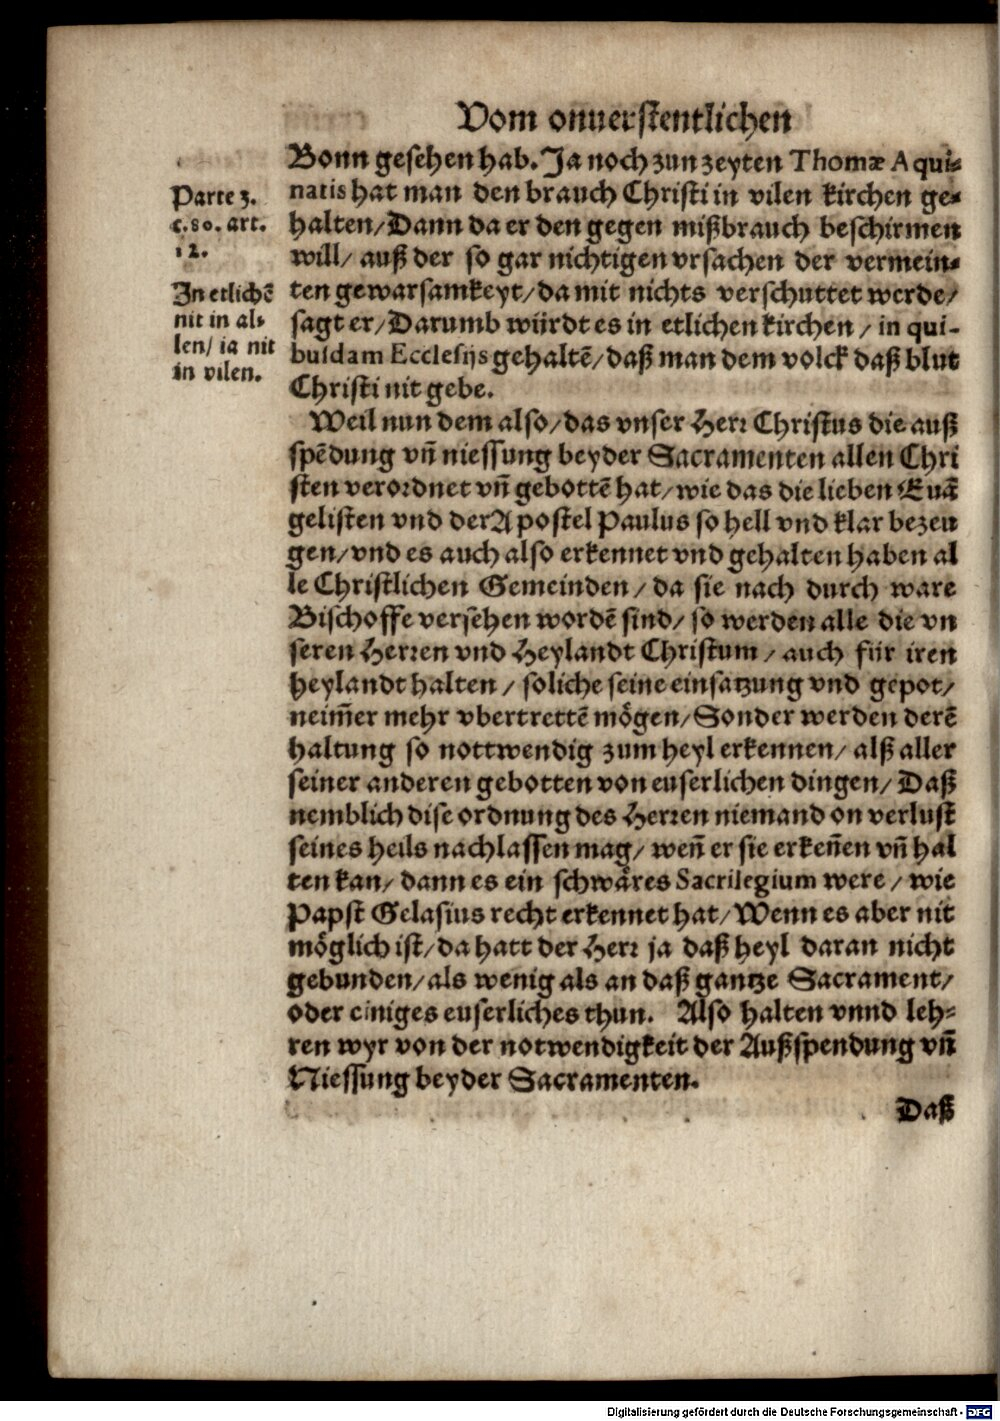 Vom onuerstentlichen
Bonn gesehen hab. Ja noch zun zeyten Thomæ Aqui-
natis hat man den brauch Christi in vilen kirchen ge-
halten/Dann da er den gegen mißbrauch beschirmen
will/ auß der so gar nichtigen vrsachen der vermein-
ten gewarsamkeyt/da mit nichts verschuttet werde/
sagt er/Darumb würdt es in etlichen kirchen/in qui-
busdam Ecclesijs gehaltē/daß man dem volck daß blut
Christi nit gebe.
Parte 3.
c.80. art.
12.
In etlichē
nit in al-
len/ ia nit
in vilen.
Weil nun dem also/das vnser Herr Christus die auß
spēdung vñ niessung beyder Sacramenten allen Chri
sten verordnet vñ gebottē hat/wie das die lieben Euā
gelisten vnd der Apostel Paulus so hell vnd klar bezeu
gen/vnd es auch also erkennet vnd gehalten haben al
le Christlichen Gemeinden/da sie nach durch ware
Bischoffe versehen wordē sind/so werden alle die vn
seren Herren vnd Heylandt Christum/auch für iren
heylandt halten/soliche seine einsatzung vnd gepot/
neim̄er mehr vbertrettē mögen/Sonder werden derē
haltung so nottwendig zum heyl erkennen/alß aller
seiner anderen gebotten von euserlichen dingen/Daß
nemblich dise ordnung des Herren niemand on verlust
seines heils nachlassen mag/weñ er sie erkeñen vñ hal
ten kan/dann es ein schwäres Sacrilegium were/wie
Papst Gelasius recht erkennet hat/Wenn es aber nit
möglich ist/da hatt der Herr ja daß heyl daran nicht
gebunden/als wenig als an daß gantze Sacrament/
oder einiges euserliches thun. Also halten vnnd leh-
ren wyr von der notwendigkeit der Außspendung vñ
Niessung beyder Sacramenten.
Daß
Digitalisierung gefördert durch die Deutsche Forschungsgemeinschaft - DFG